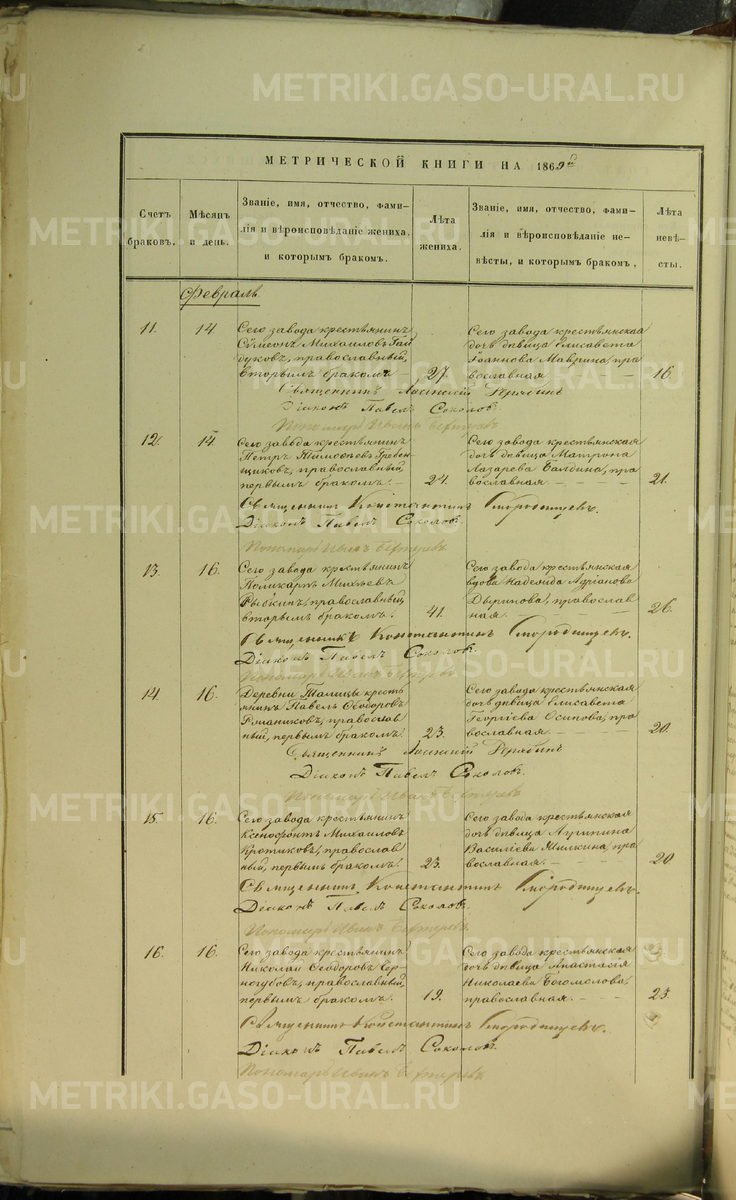 METRIKI.GASO-URAL.RU
МЕТРИЧЕСКОЙ КНИГИ НА 1869й
Счетъ браковъ.
Мѣсяцъ и день.
Званіе, имя, отчество, фами-
лія и вѣроисповѣданіе жениха,
и которымъ бракомъ.
Лѣта жениха.
Званіе, имя, отчество, фами-
лія и вѣроисповѣданіе не-
вѣсты, и которымъ бракомъ,
Лѣта невѣ-
сты.
Февраль.
11. 14 Сего завода крестьянинъ
Сѵмеонъ Михаиловъ Гай
дуковъ, православный,
вторымъ бракомъ 27.
Сего завода крестьянская
дочь дѣвица Елисавета
Іоаннова Маврина, пра
вославная 16.
Священникъ
Діаконъ Павелъ Соколовъ.
Пономарь Иванъ
12. 14. Сего завода крестьянинъ
Петръ Тимофеевъ Гребен
щиковъ, православный,
первымъ бракомъ. 24.
Сего завода крестьянская
дочь дѣвица Матрона
Лазарева Балдина, пра
вославная. 21.
Священникъ Константинъ Смородинцевъ.
Діаконъ Павелъ Соколовъ.
Пономарь Иванъ
13. 16. Сего завода крестьянинъ
Поликарпъ Михѣевъ
Рыбкинъ, православный,
вторымъ бракомъ. 41.
Сего завода крестьянская
вдова Надежда Адріанова
православ
ная. 26.
Священникъ Константинъ Смородинцевъ.
Діаконъ Павелъ Соколовъ.
Пономарь Иванъ
14. 16. Деревни Талицы кресть
янинъ Павелъ Ѳеодоровъ
православ
ный, первымъ бракомъ. 23.
Сего завода крестьянская
дочь дѣвица Елисавета
Георгіева Осипова, пра
вославная. 20.
Священникъ
Діаконъ Павелъ Соколовъ.
Пономарь Иванъ
15. 16. Сего завода крестьянинъ
Ксенофонтъ Михаиловъ
Кротиковъ, православ
ный, первымъ бракомъ. 23.
Сего завода крестьянская
дочь дѣвица Агрипина
Василіева пра
вославная. 20
Священникъ Константинъ Смородинцевъ.
Діаконъ Павелъ Соколовъ.
Пономарь Иванъ
16. 16. Сего завода крестьянинъ
Николай Ѳеодоровъ Чер
ногубовъ, православный,
первымъ бракомъ. 19.
Сего завода крестьянская
дочь дѣвица Анастасія
Николаева Богомолова,
православная. 23.
Священникъ Константинъ Смородинцевъ.
Діаконъ Павелъ Соколовъ.
Пономарь Иванъ